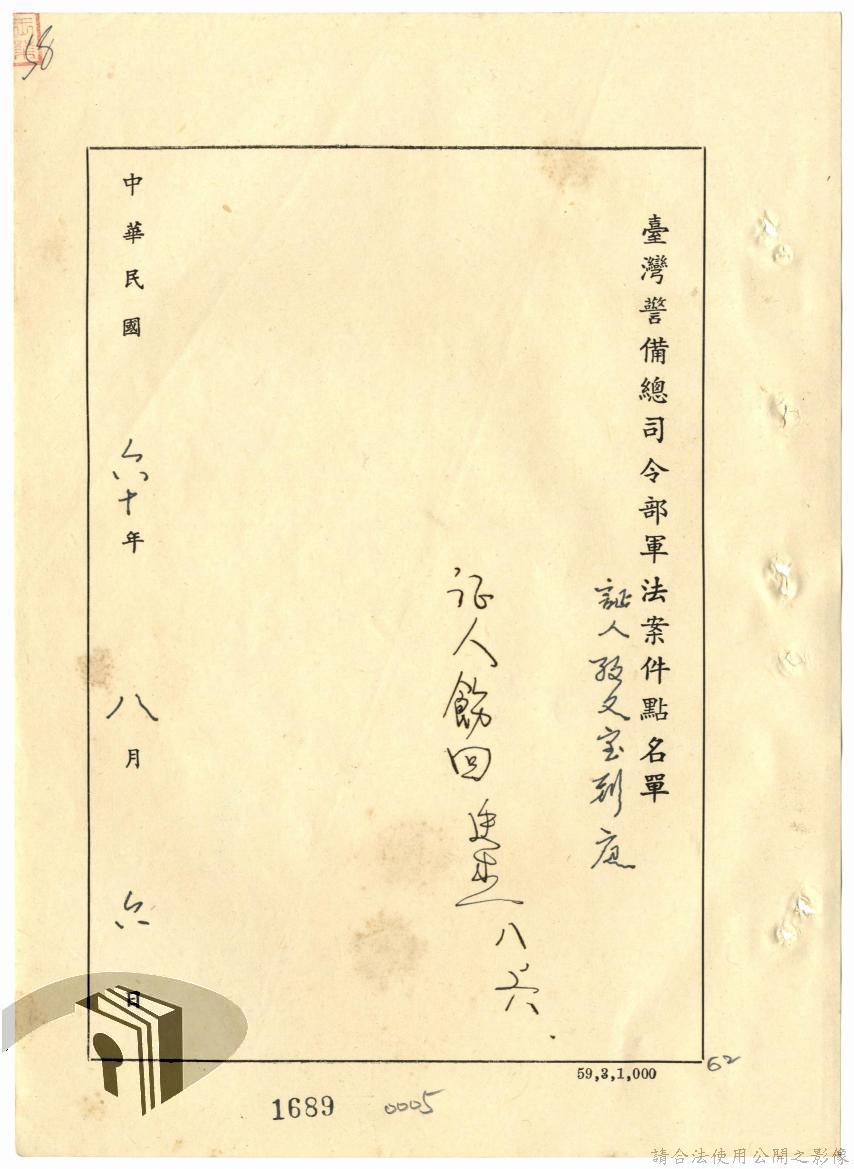 58
臺灣警備總司令部軍法案件點名單
証人 文宝到庭
证人飭回
八六
中華民國六十年八月六日
59,3,1,000
62
1689
0005
請合法使用公開之影像